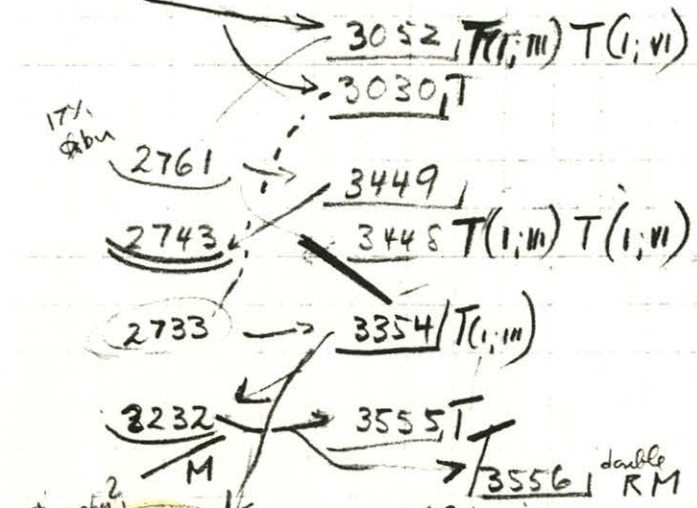 3052, T(1,111) T(1,v1)
3030, T
17%
2761
3449
2743
3448 T(1,111) T(1,v1)
2733
3354 T(1,111)
3232
3555, T
M
3556 double
RM